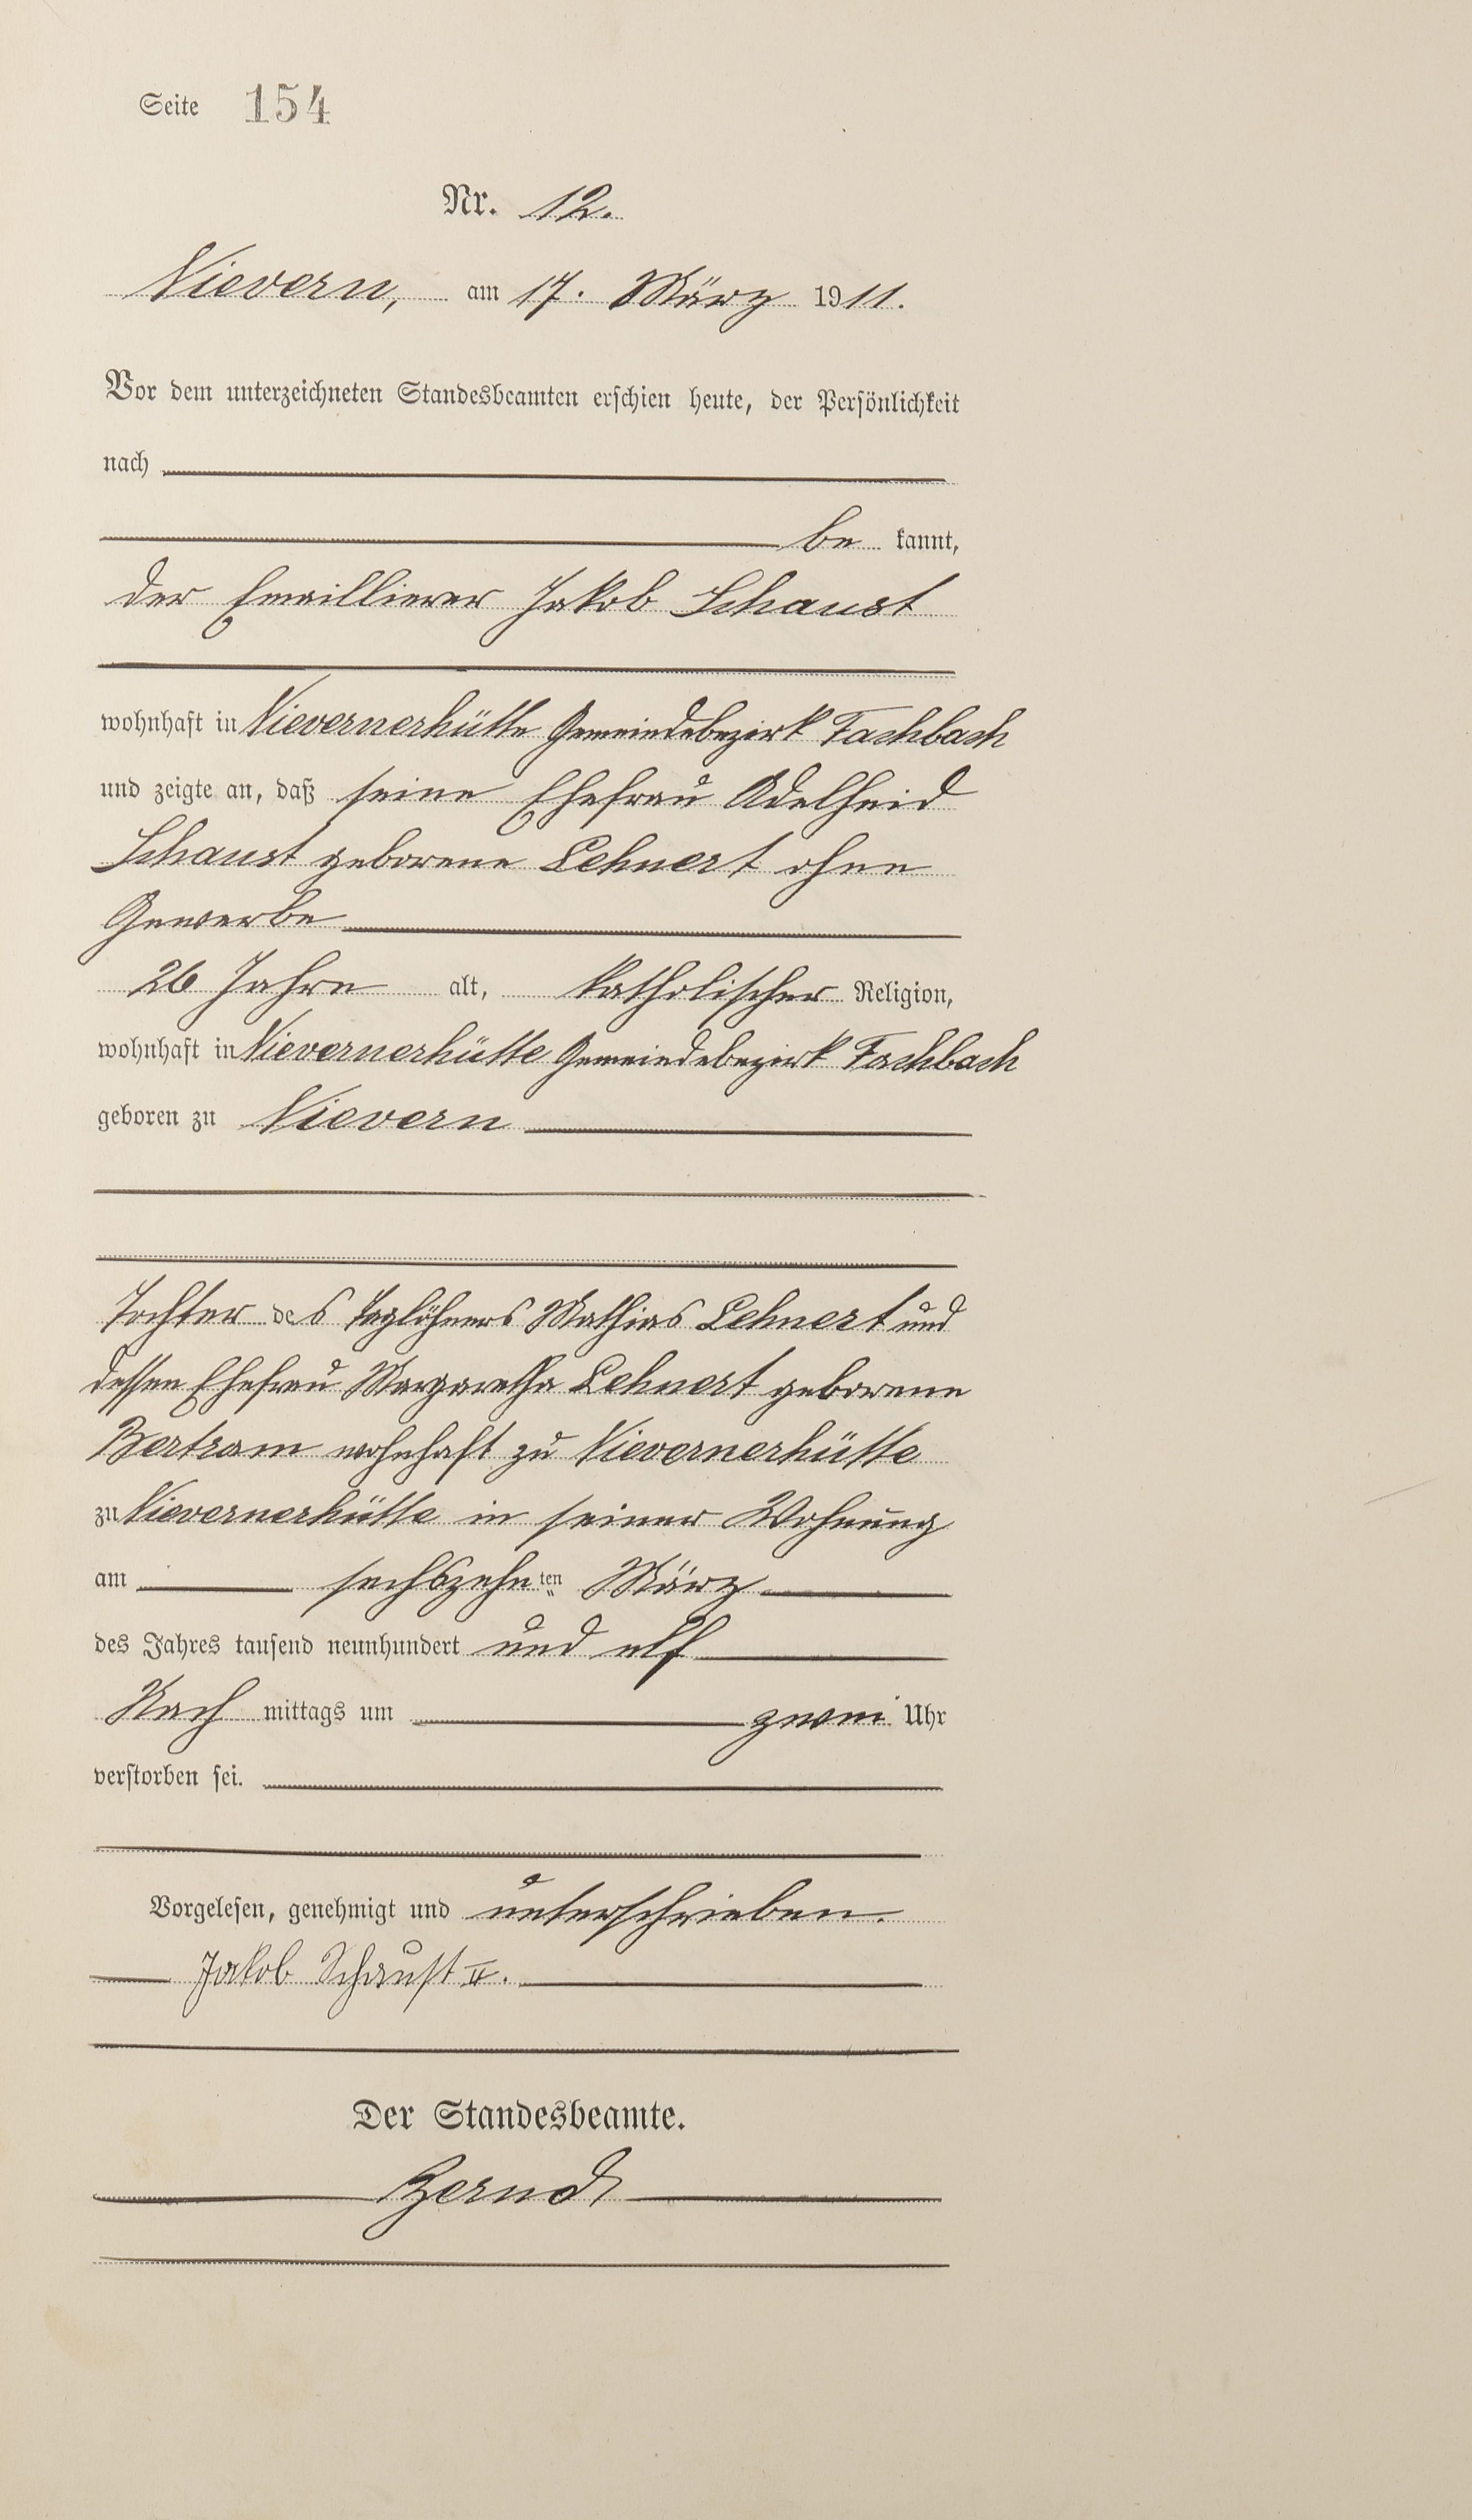 Seite 154
Nr. 12.
Nievern, am 17. März 1911.
Vor dem unterzeichneten Standesbeamten erschien heute, der Persönlichkeit
nach
be kannt,
der Emaillierer Jakob Schaust
wohnhaft in Nievernerhütte Gemeindebezirk Fachbach
und zeigte an, daß seine Ehefrau Adelheid
Schaust geborene Lehnert ohne
Gewerbe
26 Jahre alt, katholischer Religion,
wohnhaft in Nievernerhütte Gemeindebezirk Fachbach
geboren zu Nievern
Tochter des Taglöhners Mathias Lehnert und
dessen Ehefrau Margaretha Lehnert geborene
Bertram wohnhaft zu Nievernerhütte
zu Nievernerhütte in seiner Wohnung
am sechszehnten März
des Jahres tausend neunhundert und elf
Nach mittags um zwei Uhr
verstorben sei.
Vorgelesen, genehmigt und unterschrieben.
Jakob Schaust II.
Der Standesbeamte.
Zerndt